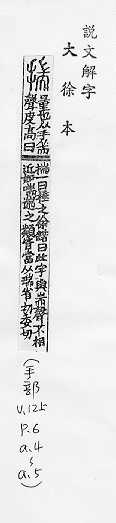 說文解字
大徐本
揣 量也从手耑聲度高曰
揣一曰捶之徐鍇曰此字與耑聲不相
近如喘遄之類皆當从瑞省初委切
(手部
V.12下
P.6
a.4
~
a.5)